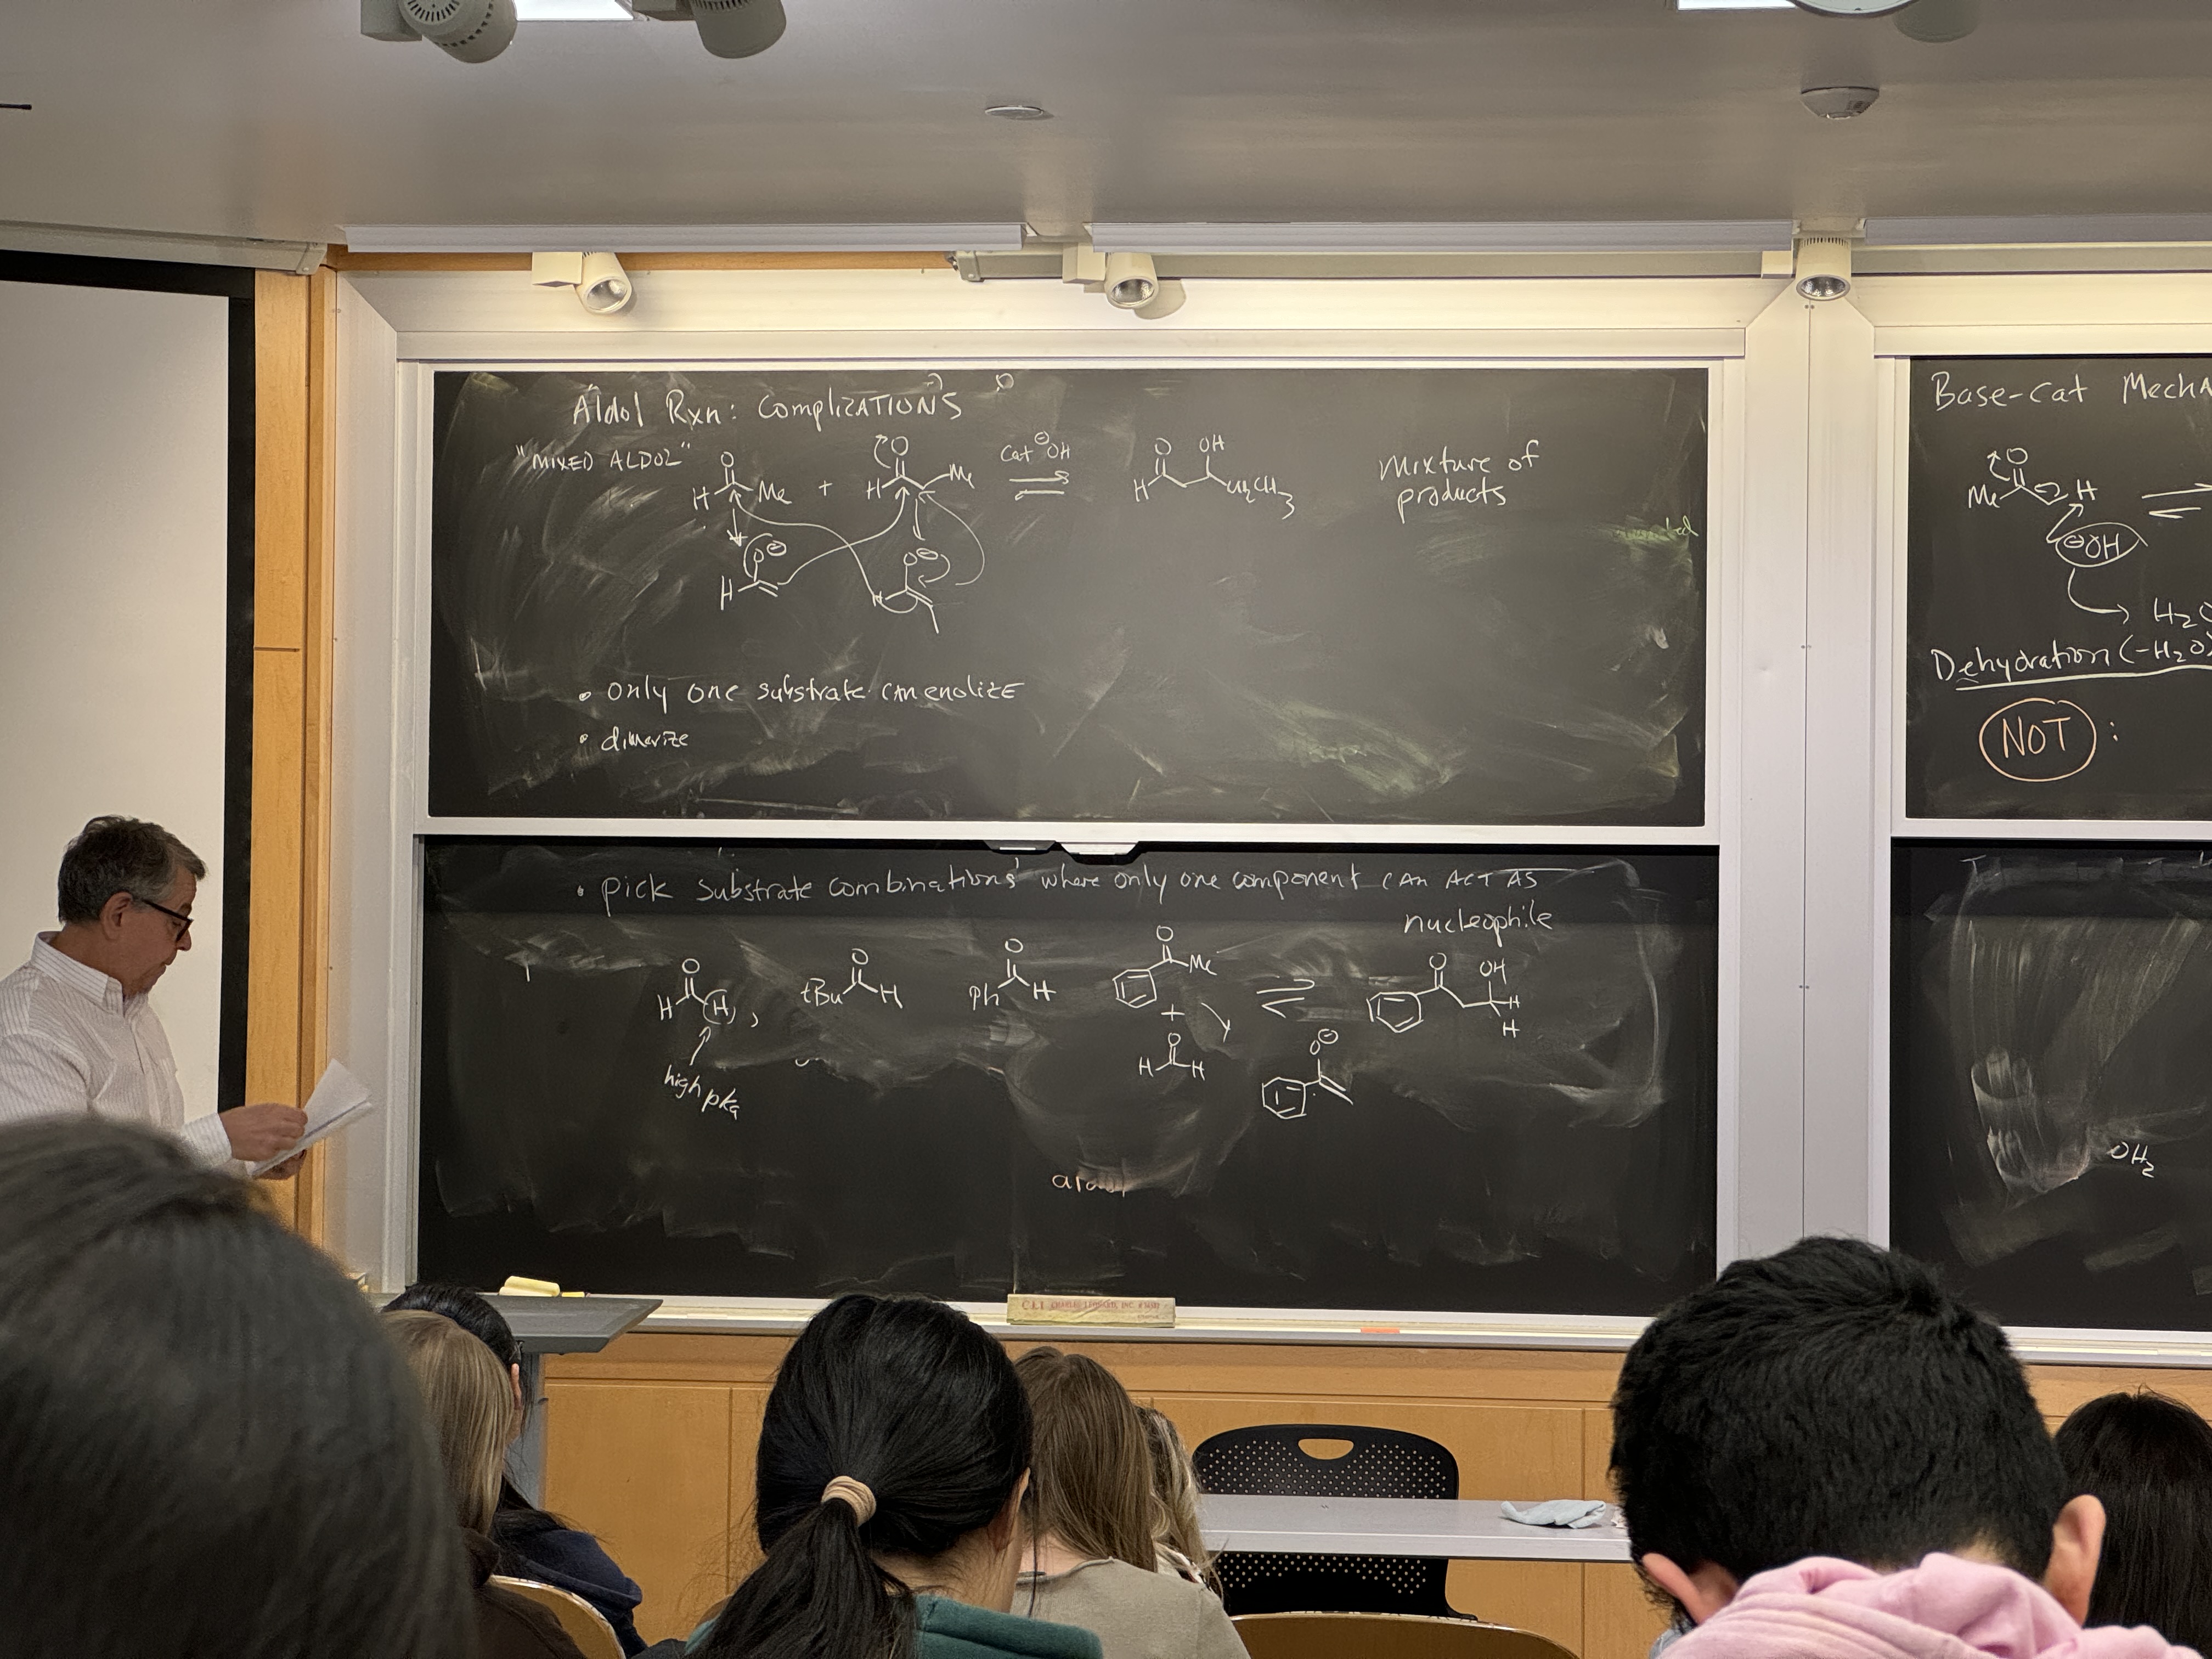 Aldol Rxn: Complications
"MIXED ALDOL"
O
H Me + H O Me
Cat ⊖OH
O OH
H CH₂CH₃
mixture of
products
O⊖
H
O⊖
H
• only one substrate can enolize
• dimerize
• pick substrate combinations where only one component can act as
nucleophile
O
H H ,
high pKa
O
tBu H
O
Ph H
O
Me
+
O
H H
O⊖
O OH
H
H
Base-cat Mecha
O
Me H
⊖OH
H₂O
Dehydration (-H₂O)
NOT :
OH₂